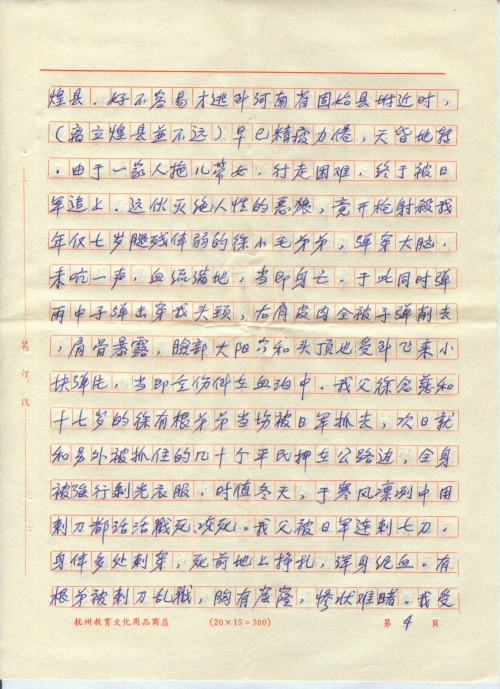 煌县．好不容易才逃到河南省固始县附近时，
（离立煌县並不远）早已精疲力倦，天昏地转
．由于一家人拖儿带女．行走困难，终于被日
军追上．这伙灭绝人性的恶狼，竟开枪射殺我
年仅七岁腿残体弱的徐小毛弟弟，弹穿大脑．
未吭一声．血流满地，当即身亡．于此同时弹
雨中子弹击穿我头颈，右肩皮肉全被子弹削去
，肩骨暴露，臉部大阳穴和头顶也受到飞来小
块弹片，当即受伤卧在血泊中．我父徐念慈和
十七岁的徐有根弟弟当场被日军抓去，次日就
和另外被抓住的几十个平民押在公路边，全身
被强行剥光衣服．时值冬天，于寒风凛冽中用
刺刀都活活戳死、冻死。我父被日军连刺七刀，
身体多处刺穿，死前地上挣扎，浑身绝血．有
根弟被刺刀乱戳，胸有窟窿，惨状难睹．我受
装订线
杭州教育文化用品商店 (20×15=300) 第4頁